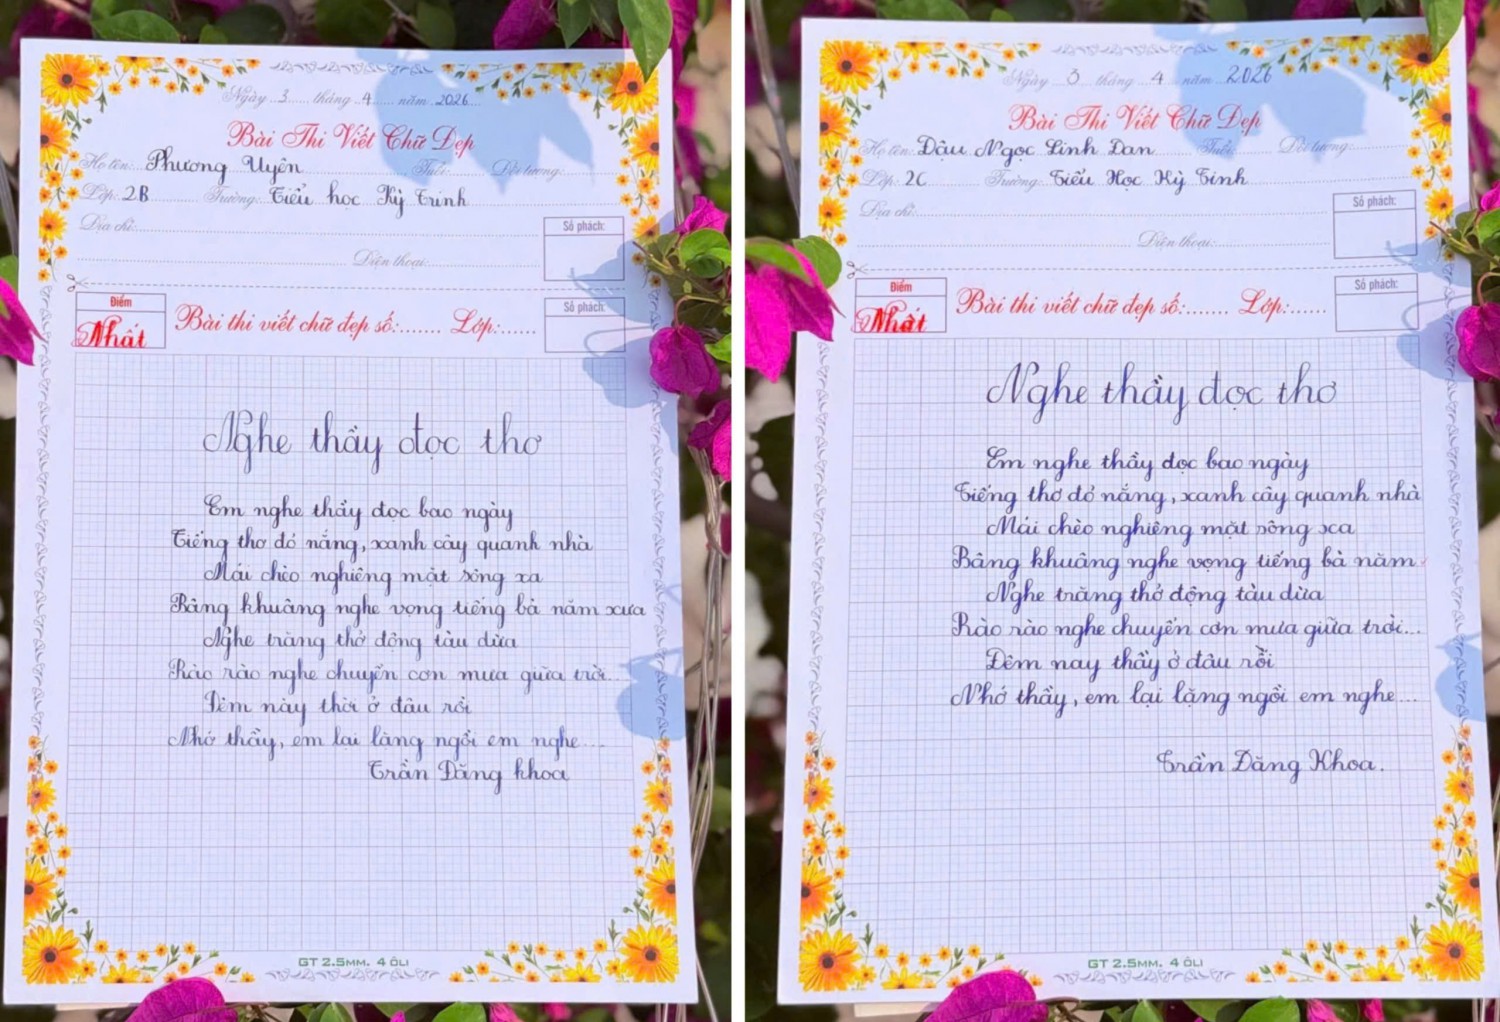 Ngày 3 tháng 4 năm 2026
Bài Thi Viết Chữ Đẹp
Họ tên: Phương Uyên Tuổi: Đối tượng:
Lớp: 2B Trường: Tiểu học Kỳ Trinh
Địa chỉ:
Số phách:
Điện thoại:
Điểm
Nhất
Bài thi viết chữ đẹp số:....... Lớp:......
Số phách:
Nghe thầy đọc thơ
Em nghe thầy đọc bao ngày
Tiếng thơ đỏ nắng, xanh cây quanh nhà
Mái chèo nghiêng mặt sông xa
Bâng khuâng nghe vọng tiếng bà năm xưa
Nghe trăng thở động tàu dừa
Rào rào nghe chuyển cơn mưa giữa trời...
Đêm này thời ở đâu rồi
Nhớ thầy, em lại lặng ngồi em nghe...
Trần Đăng khoa
GT 2.5MM. 4 ÔLI
Ngày 3 tháng 4 năm 2026
Bài Thi Viết Chữ Đẹp
Họ tên: Dậu Ngọc Linh Đan Tuổi: Đối tượng:
Lớp: 2C Trường: Tiểu Học Kỳ Tinh
Địa chỉ:
Số phách:
Điện thoại:
Điểm
Nhất
Bài thi viết chữ đẹp số:....... Lớp:......
Số phách:
Nghe thầy đọc thơ
Em nghe thầy đọc bao ngày
Tiếng thơ đỏ nắng, xanh cây quanh nhà
Mái chèo nghiêng mặt sông xa
Bâng khuâng nghe vọng tiếng bà năm
Nghe trăng thở động tàu dừa
Rào rào nghe chuyển cơn mưa giữa trời...
Đêm nay thầy ở đâu rồi
Nhớ thầy, em lại lặng ngồi em nghe...
Trần Đăng Khoa.
GT 2.5MM. 4 ÔLI